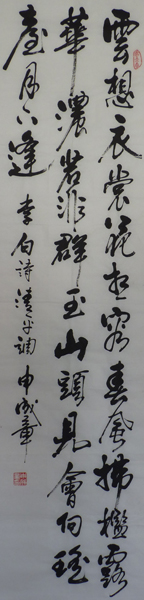 雲想衣裳花想容春風拂檻露
華濃若非群玉山頭見會向瑤
臺月下逢 李白詩清平調 申成華